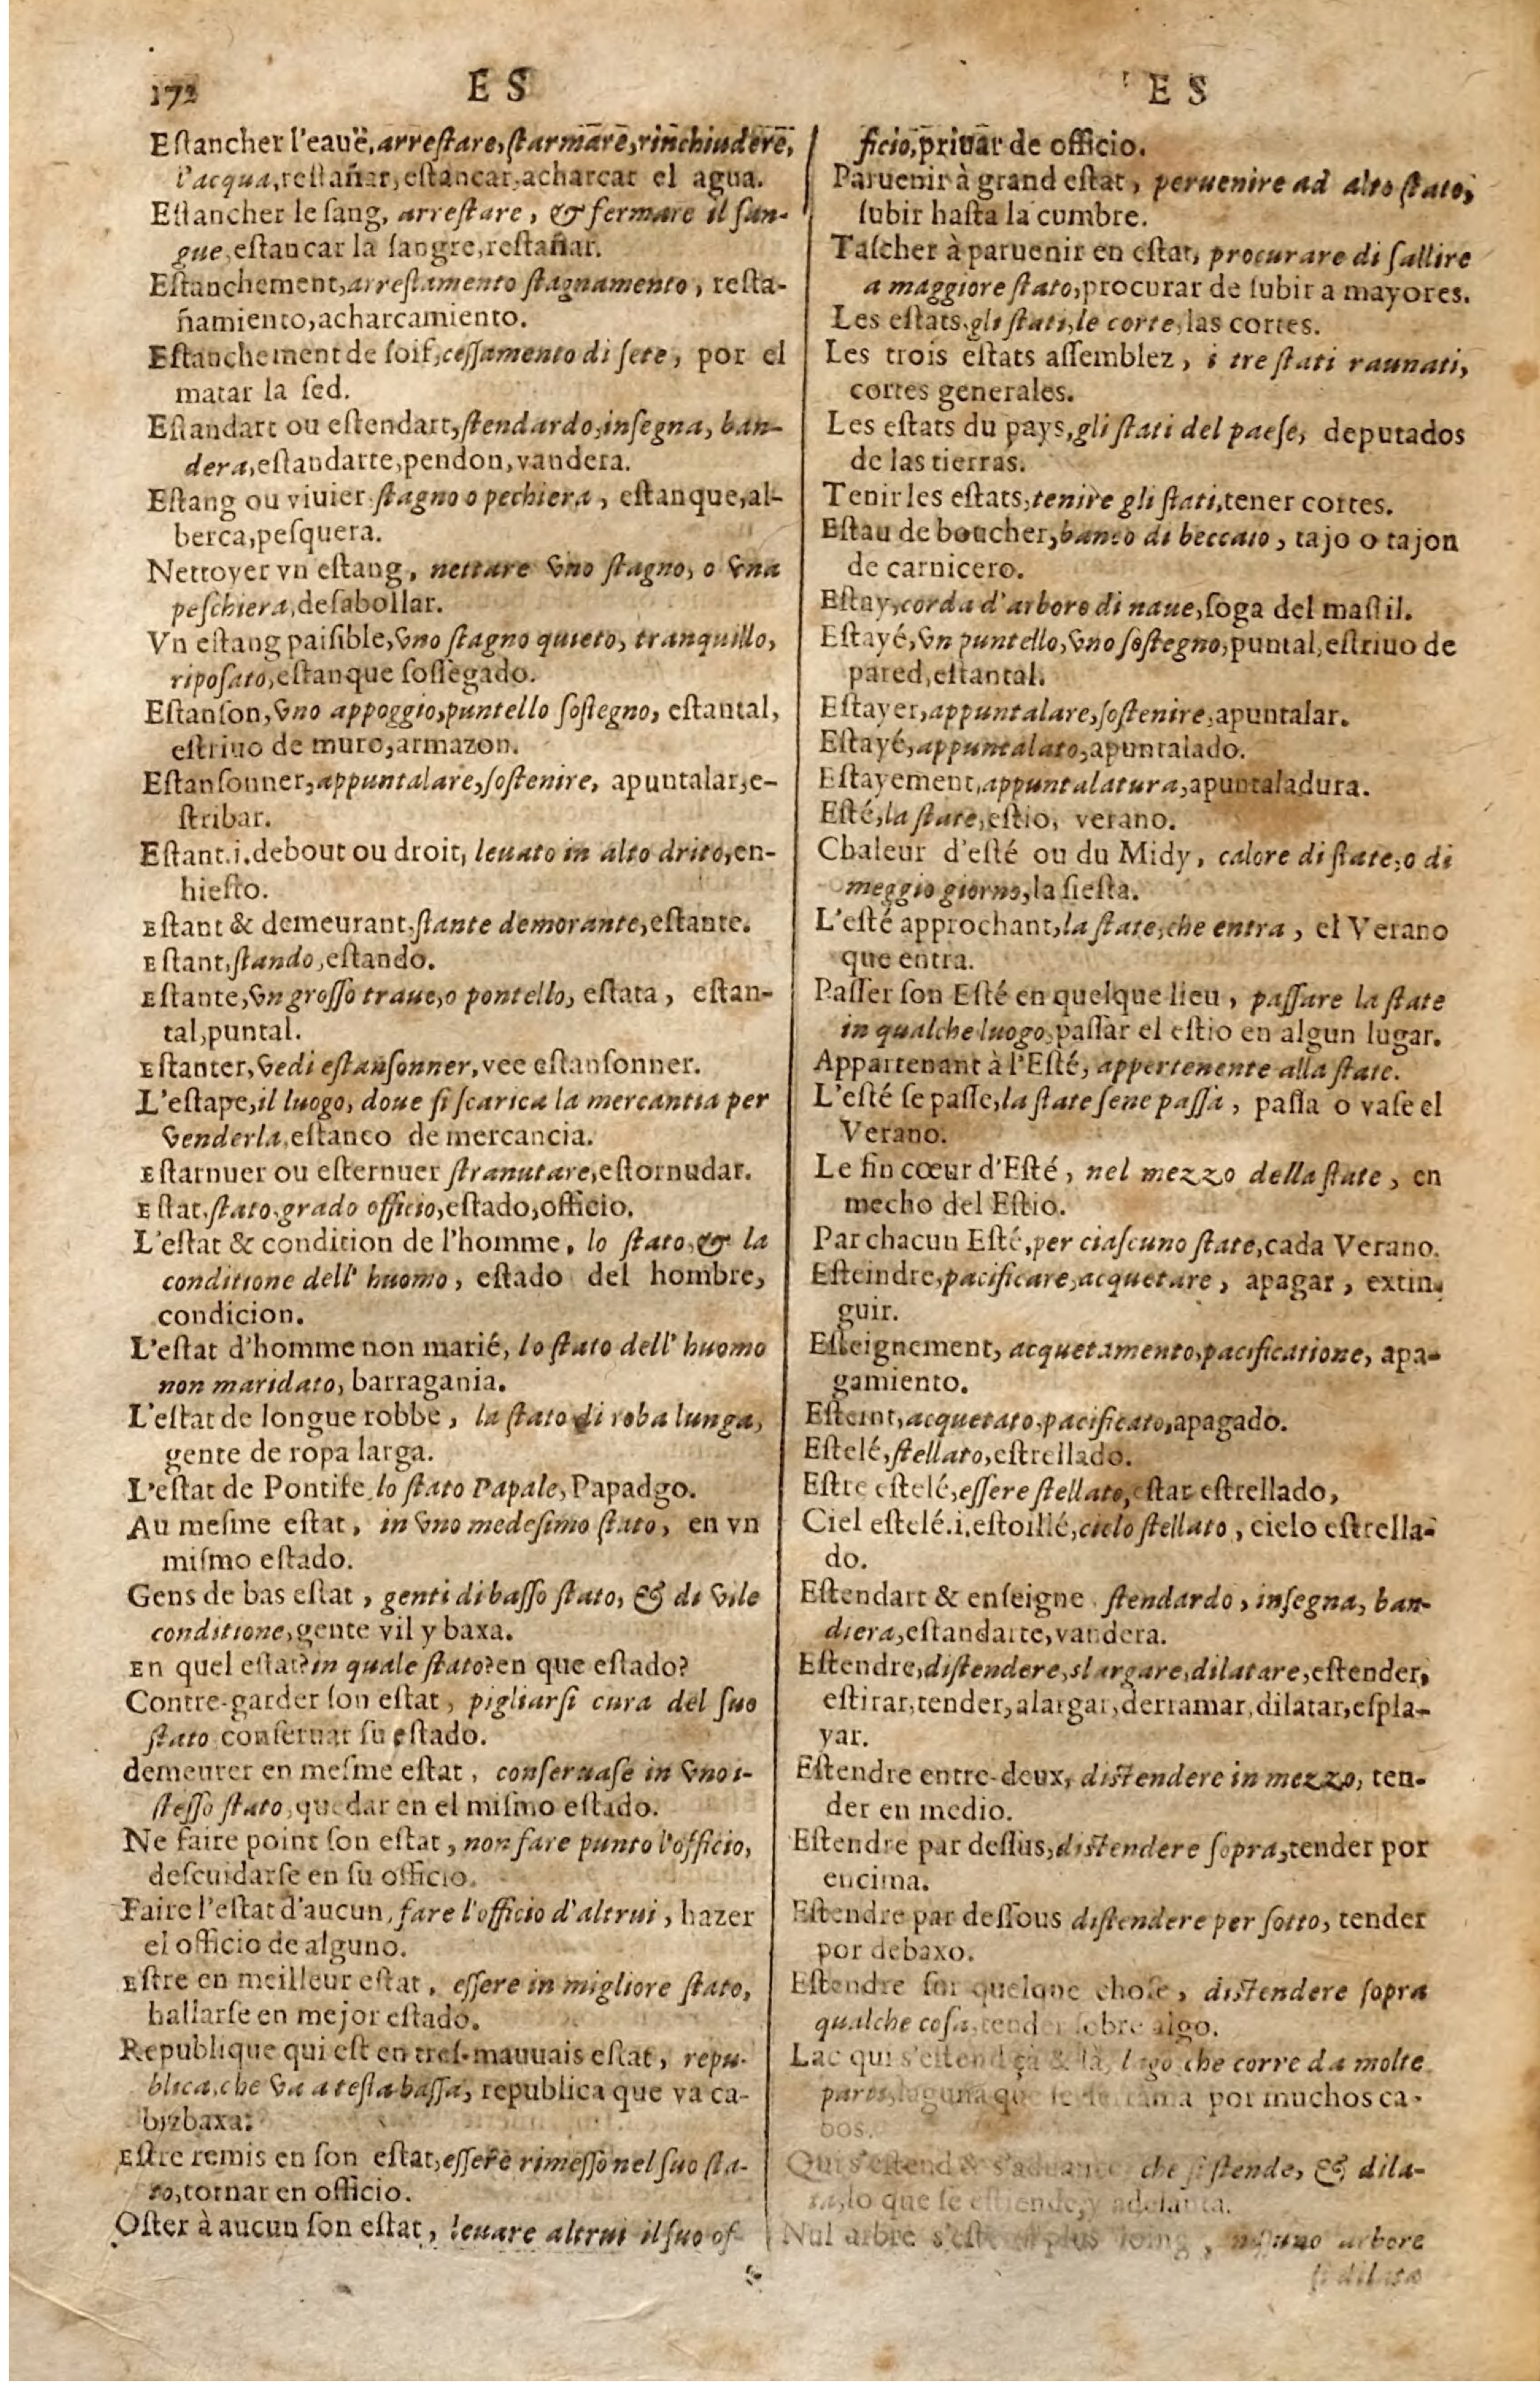 172
ES
ES
Eſtancher l'eauë, arreſtare, ſtarmare, rinchiudere,
l'acqua, reſtañar, eſtancar, acharcar el agua.
Eſtancher le ſang, arreſtare, & fermare il ſan-
gue, eſtancar la ſangre, reſtañar.
Eſtanchement, arreſtamento ſtagnamento, reſta-
ñamiento, acharcamiento.
Eſtanchement de ſoif, ceſſamento di ſete, por el
matar la ſed.
Eſtandart ou eſtendart, ſtendardo, inſegna, ban-
dera, eſtandarte, pendon, vandera.
Eſtang ou viuier, ſtagno o pechiera, eſtanque, al-
berca, peſquera.
Nettoyer vn eſtang, nettare vno ſtagno, o vna
peſchiera, deſabollar.
Vn eſtang paiſible, vno ſtagno quieto, tranquillo,
ripoſato, eſtanque ſoſſegado.
Eſtanſon, vno appoggio, puntello ſoſtegno, eſtantal,
eſtriuo de muro, armazon.
Eſtanſonner, appuntalare, ſoſtenire, apuntalar, e-
ſtribar.
Eſtant. i. debout ou droit, leuato in alto drito, en-
hieſto.
Eſtant & demeurant, ſtante demorante, eſtante.
Eſtant, ſtando, eſtando.
Eſtante, vn groſſo traue, o pontello, eſtata, eſtan-
tal, puntal.
Eſtanter, vedi eſtanſonner, vee eſtanſonner.
L'eſtape, il luogo, doue ſi ſcarica la mercantia per
venderla, eſtanco de mercancia.
Eſtarnuer ou eſternuer ſtranutare, eſtornudar.
Eſtat, ſtato, grado officio, eſtado, officio.
L'eſtat & condition de l'homme, lo ſtato, & la
conditione dell' huomo, eſtado del hombre,
condicion.
L'eſtat d'homme non marié, lo ſtato dell' huomo
non maridato, barragania.
L'eſtat de longue robbe, la ſtato di roba lunga,
gente de ropa larga.
L'eſtat de Pontife, lo ſtato Papale, Papadgo.
Au meſme eſtat, in vno medeſimo ſtato, en vn
miſmo eſtado.
Gens de bas eſtat, genti di baſſo ſtato, & di vile
conditione, gente vil y baxa.
En quel eſtat? in quale ſtato? en que eſtado?
Contre-garder ſon eſtat, pigliarſi cura del ſuo
ſtato conſeruar ſu eſtado.
demeurer en meſme eſtat, conſeruaſe in vno i-
ſteſſo ſtato, quedar en el miſmo eſtado.
Ne faire point ſon eſtat, non fare punto l'officio,
deſcuidarſe en ſu officio.
Faire l'eſtat d'aucun, fare l'officio d'altrui, hazer
el officio de alguno.
Eſtre en meilleur eſtat, eſſere in migliore ſtato,
hallarſe en mejor eſtado.
Republique qui eſt en treſ-mauuais eſtat, repu-
blica, che va a teſta baſſa, republica que va ca-
bizbaxa.
Eſtre remis en ſon eſtat, eſſere rimeſſo nel ſuo ſta-
to, tornar en officio.
Oſter à aucun ſon eſtat, leuare altrui il ſuo of-
ficio, priuar de officio.
Paruenir à grand eſtat, peruenire ad alto ſtato,
ſubir haſta la cumbre.
Taſcher à paruenir en eſtat, procurare di ſallire
a maggiore ſtato, procurar de ſubir a mayores.
Les eſtats, gli ſtati, le corte, las cortes.
Les trois eſtats aſſemblez, i tre ſtati raunati,
cortes generales.
Les eſtats du pays, gli ſtati del paeſe, deputados
de las tierras.
Tenir les eſtats, tenire gli ſtati, tener cortes.
Eſtau de boucher, banco di beccaio, tajo o tajon
de carnicero.
Eſtay, corda d'arbore di naue, ſoga del maſtil.
Eſtayé, vn puntello, vno ſoſtegno, puntal, eſtriuo de
pared, eſtantal.
Eſtayer, appuntalare, ſoſtenire, apuntalar.
Eſtayé, appuntalato, apuntalado.
Eſtayement, appuntalatura, apuntaladura.
Eſté, la ſtate, eſtio, verano.
Chaleur d'eſté ou du Midy, calore di ſtate, o di
meggio giorno, la ſieſta.
L'eſté approchant, la ſtate, che entra, el Verano
que entra.
Paſſer ſon Eſté en quelque lieu, paſſare la ſtate
in qualche luogo, paſſar el eſtio en algun lugar.
Appartenant à l'Eſté, appertenente alla ſtate.
L'eſté ſe paſſe, la ſtate ſene paſſa, paſſa o vaſe el
Verano.
Le fin cœur d'Eſté, nel mezzo della ſtate, en
mecho del Eſtio.
Par chacun Eſté, per ciaſcuno ſtate, cada Verano.
Eſteindre, pacificare, acquetare, apagar, extin-
guir.
Eſteignement, acquetamento, pacificatione, apa-
gamiento.
Eſteint, acquetato, pacificato, apagado.
Eſtelé, ſtellato, eſtrellado.
Eſtre eſtelé, eſſere ſtellato, eſtar eſtrellado,
Ciel eſtelé. i. eſtoillé, cielo ſtellato, cielo eſtrella-
do.
Eſtendart & enſeigne. ſtendardo, inſegna, ban-
diera, eſtandarte, vandera.
Eſtendre, diſtendere, slargare, dilatare, eſtender,
eſtirar, tender, alargar, derramar, dilatar, eſpla-
yar.
Eſtendre entre-deux, diſtendere in mezzo, ten-
der en medio.
Eſtendre par deſſus, diſtendere ſopra, tender por
encima.
Eſtendre par deſſous diſtendere per ſotto, tender
por debaxo.
Eſtendre ſur quelque choſe, diſtendere ſopra
qualche coſa, tender ſobre algo.
Lac qui s'eſtend çà & là, lago che corre da molte
parti, laguna que ſe derrama por muchos ca-
bos.
Qui s'eſtend & s'aduance che ſi ſtende, & dila-
ta, lo que ſe eſtiende, y adelanta.
Nul arbre plus loing, niſſuno arbore
ſi dilata